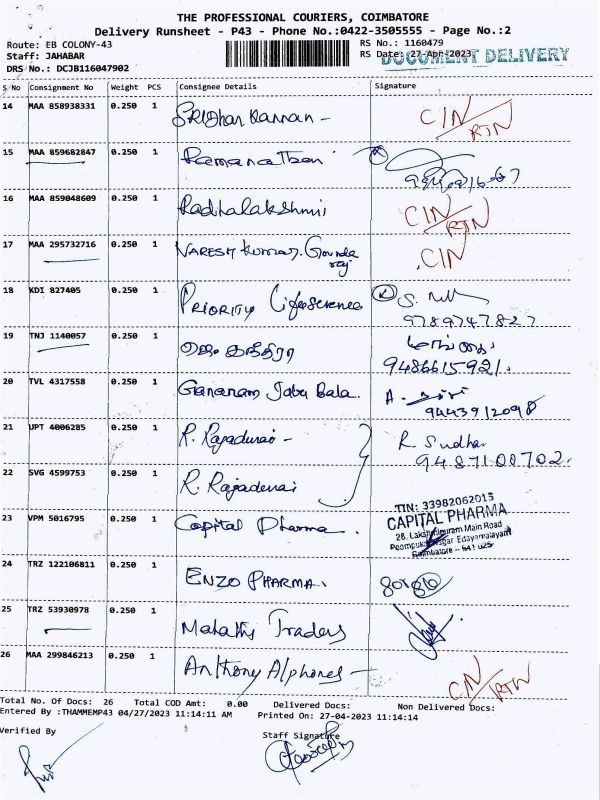 THE PROFESSIONAL COURIERS, COIMBATORE
Delivery Runsheet - P43 - Phone No.:0422-3505555 - Page No.:2
Route: EB COLONY-43 RS No.: 1160479
Staff: JAHABAR RS Date: 27-Apr-2023 DOCUMENT DELIVERY
DRS No.: DCJB116047902
S No Consignment No Weight PCS Consignee Details Signature
14 MAA 858938331 0.250 1 SRIDhar Kannan - CIN/RTN
15 MAA 859682847 0.250 1 Ramanathan
16 MAA 859048609 0.250 1 Radhalakshmi CIN/RTN
17 MAA 295732716 0.250 1 NARESH Kumar. Govinda raj CIN
18 KDI 827405 0.250 1 PRIORITY Lifesciences S.
9789747827
19 TNJ 1140057 0.250 1
9486615921.
20 TVL 4317558 0.250 1 Gnanam Jaba Bala. A.
9443912098
21 UPT 4006285 0.250 1 R. Rajadurai - R. Sudha
9487100702.
22 SVG 4599753 0.250 1 R. Rajadurai
23 VPM 5016795 0.250 1 Capital Pharma. TIN: 33982062015
CAPITAL PHARMA
Main Road
Edayarpalayam
Coimbatore - 641 025
24 TRZ 122106811 0.250 1 ENZO PHARMA.
25 TRZ 53930978 0.250 1 Malathi Traders
26 MAA 299846213 0.250 1 Anthony Alphones - CIN/RTN
Total No. Of Docs: 26 Total COD Amt: 0.00 Delivered Docs: Non Delivered Docs:
Entered By :THAMMEMP43 04/27/2023 11:14:11 AM Printed On: 27-04-2023 11:14:14
Verified By Staff Signature